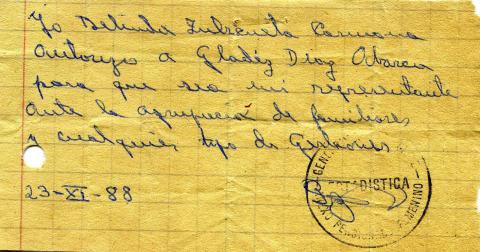 Yo Belinda Zubicueta Carmona
autorizo a Gladéz Diaz Abarca
para que sea mi representante
ante la agrupación de familiares
y cualquier tipo de Gestiones.
ESTADISTICA
23-XI-88